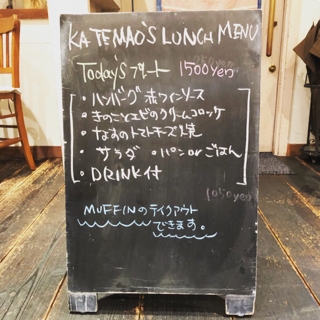 KATEMAO'S LUNCH MENU
Today's プレート 1500yen
・ハンバーグ 赤ワインソース
・きのことエビのクリームコロッケ
・なすのトマトチーズ焼
・サラダ ・パン or ごはん
・DRINK付
1050yen
MUFFINのテイクアウト
できます。